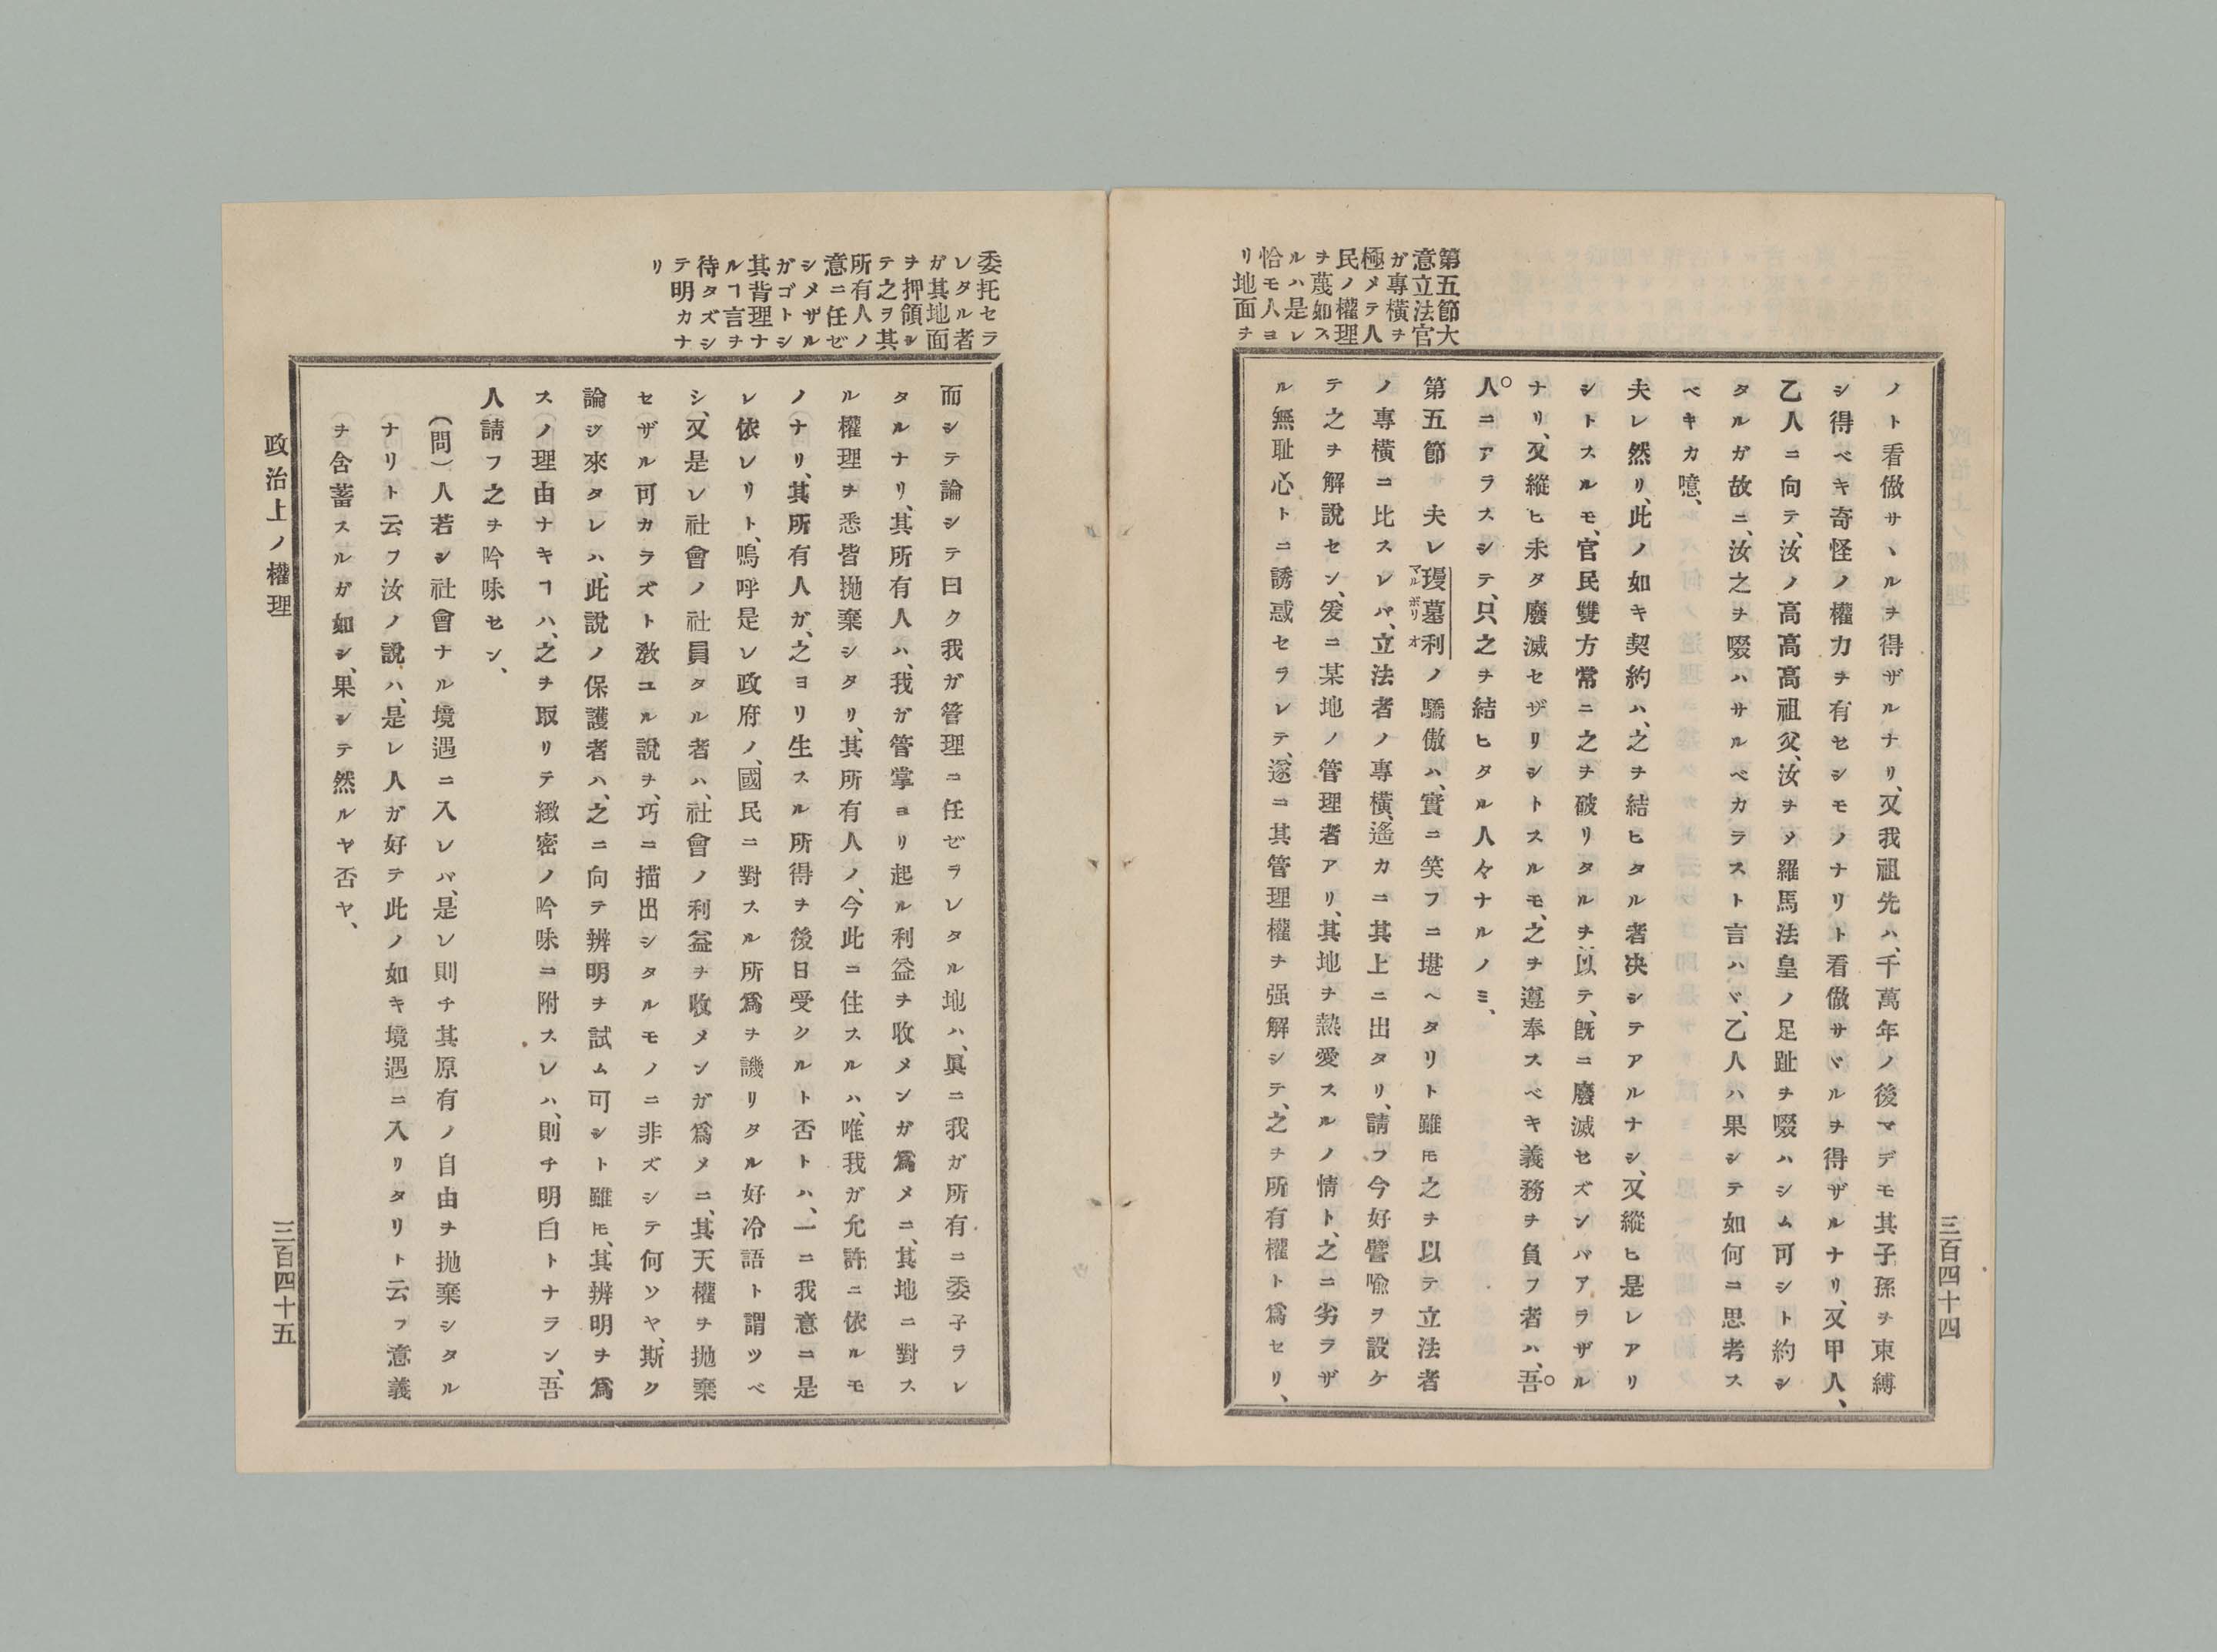 三百四十四
第五節大
意立法官
ガ專横ヲ
極メテ人
民ノ權理
ヲ蔑如ス
ルハ是レ
恰モ人ヨ
リ地面ヲ
ノト看做サヽルヲ得ザルナリ、又我祖先ハ、千萬年ノ後マデモ其子孫ヲ束縛
シ得ベキ奇怪ノ權力ヲ有セシモノナリト看做サヾルヲ得ザルナリ、又甲人、
乙人ニ向テ、汝ノ高高高祖父、汝ヲメ羅馬法皇ノ足趾ヲ啜ハシム可シト約シ
タルガ故ニ、汝之ヲ啜ハサルベカラスト言ハヾ、乙人ハ果シテ如何ニ思考ス
ベキカ噫、
夫レ然リ、此ノ如キ契約ハ、之ヲ結ヒタル者决シテアルナシ、又縱ヒ是レアリ
シトスルモ、官民雙方常ニ之ヲ破リタルヲ以テ、既ニ廢滅セズンバアラザル
ナリ、又縱ヒ未タ廢滅セザリシトスルモ、之ヲ遵奉スベキ義務ヲ負フ者ハ、吾
人ニアラスシテ、只之ヲ結ヒタル人々ナルノミ、
第五節　夫レ璦墓利ノ驕傲ハ、實ニ笑フニ堪ヘタリト雖モ之ヲ以テ立法者
ノ專横ニ比スレバ、立法者ノ專横、遙カニ其上ニ出タリ、請フ今好譬喩ヲ設ケ
テ之ヲ解說セン、爰ニ某地ノ管理者アリ、其地ヲ熱愛スルノ情ト、之ニ劣ラザ
ル無耻心トニ誘惑セラレテ、遂ニ其管理權ヲ强解シテ、之ヲ所有權ト爲セリ、
委托セラ
レタル者
ガ其地面
ヲ押領シ
テ之ヲ其
所有人ノ
意ニ任ゼ
シメザル
ガゴトシ
其背理ナ
ルヿ言ヲ
待タズシ
テ明カナ
リ
而シテ論シテ曰ク我ガ管理ニ任ゼラレタル地ハ、眞ニ我ガ所有ニ委子ラレ
タルナリ、其所有人ハ、我ガ管掌ヨリ起ル利益ヲ收メンガ爲メニ、其地ニ對ス
ル權理ヲ悉皆拋棄シタリ、其所有人ノ、今此ニ住スルハ、唯我ガ允許ニ依ルモ
ノナリ、其所有人ガ、之ヨリ生スル所得ヲ後日受クルト否トハ、一ニ我意ニ是
レ依レリト、嗚呼是レ政府ノ、國民ニ對スル所爲ヲ譏リタル好冷語ト謂ツベ
シ、又是レ社會ノ社員タル者ハ、社會ノ利益ヲ收メンガ爲メニ、其天權ヲ拋棄
セザル可カラズト敎ユル說ヲ、巧ニ描出シタルモノニ非ズシテ何ソヤ、斯ク
論ジ來タレハ、此說ノ保護者ハ、之ニ向テ辨明ヲ試ム可シト雖モ、其辨明ヲ爲
スノ理由ナキヿハ、之ヲ取リテ緻密ノ吟味ニ附スレハ、則チ明白トナラン、吾
人請フ之ヲ吟味セン、
(問)人若シ社會ナル境遇ニ入レバ、是レ則チ其原有ノ自由ヲ拋棄シタル
ナリト云フ汝ノ說ハ、是レ人ガ好テ此ノ如キ境遇ニ入リタリト云フ意義
ヲ含蓄スルガ如シ、果シテ然ルヤ否ヤ、
政治上ノ權理
三百四十五